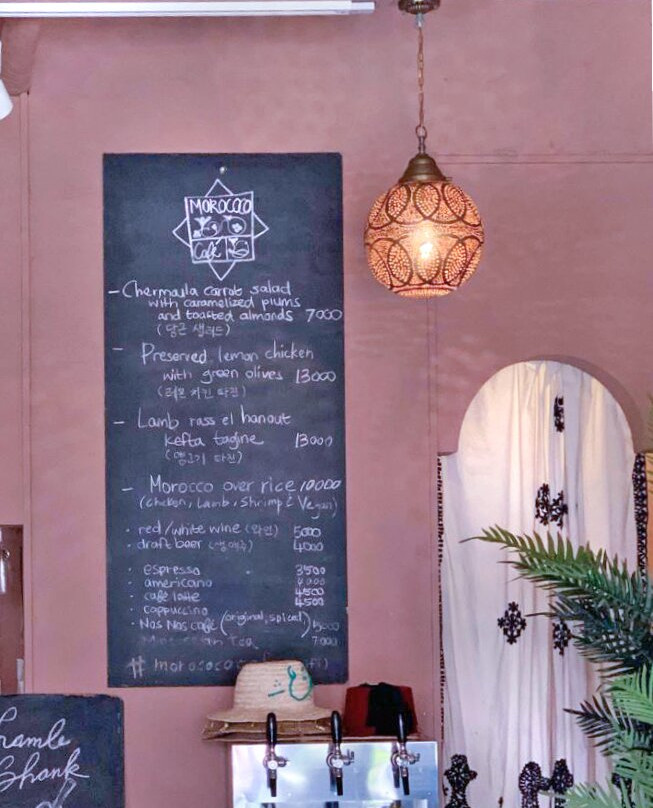 MOROCCO
Café
- Chermoula carrot salad
with caramelized plums
and toasted almonds 7000
(당근 샐러드)
- Preserved lemon chicken
with green olives 13000
(레몬 치킨 타진)
- Lamb rass el hanout
kefta tagine 13000
(양고기 타진)
- Morocco over rice 10000
(chicken, Lamb, Shrimp & Vegan)
· red/white wine (와인) 5000
· draft beer (생맥주) 4000
· espresso 3500
· americano 4000
· café latte 4500
· cappuccino 4500
· Nos Nos café (original, spiced) 5000
Moroccan tea 7000
Shank